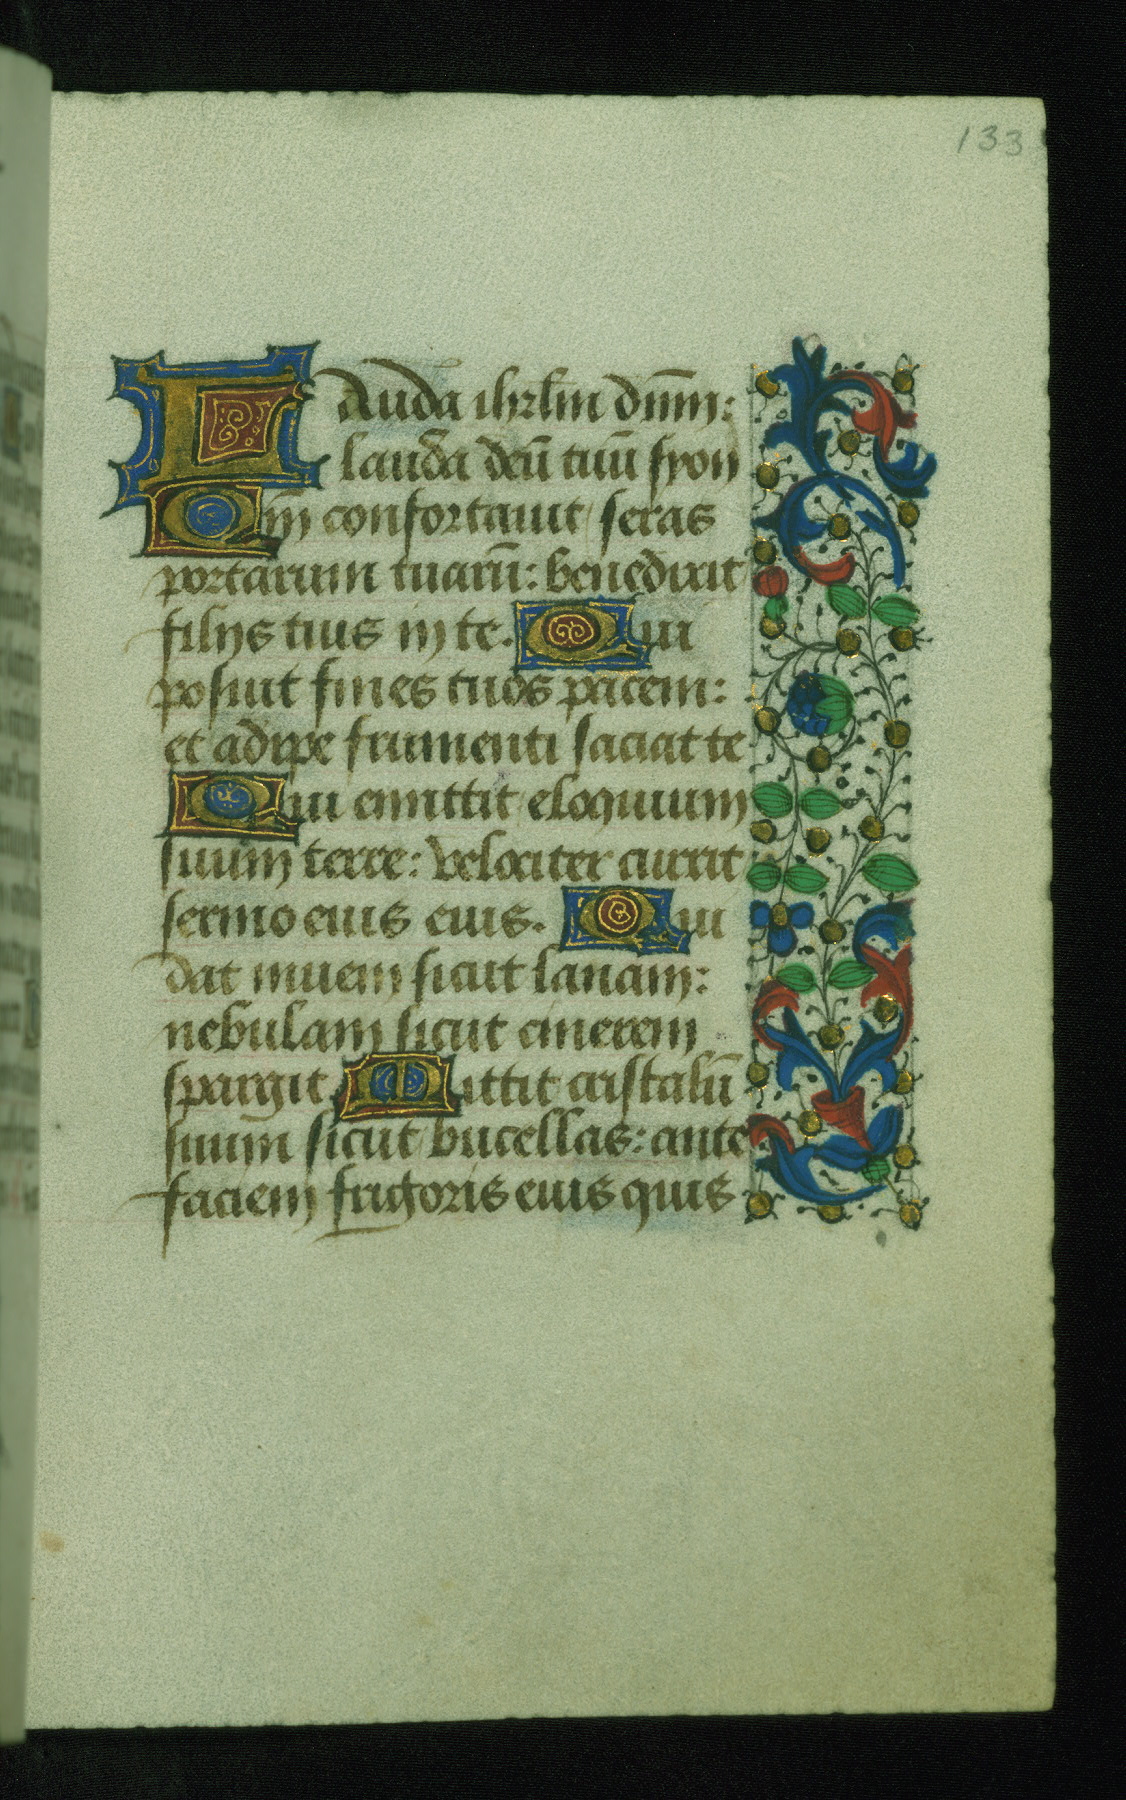 133
Lauda ihrlm dnm:
lauda deū tuū syon
Qm̄ confortauit seras
portarum tuarū: benedixit
filijs tuis in te. Qui
posuit fines tuos pacem:
et adipe frumenti saciat te
Qui emittit eloquium
suum terre: velociter currit
sermo eius eius. Qui
dat niuem sicut lanam:
nebulam sicut cinerem
spargit. Mittit cristalū
suum sicut bucellas: ante
faciem frigoris eius quis